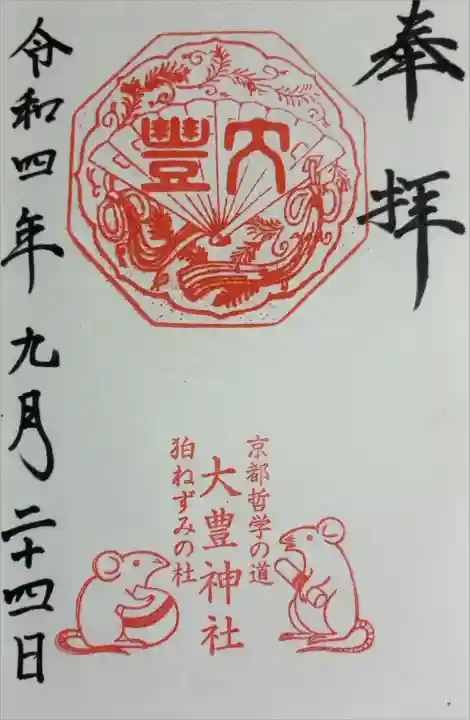 奉拝
大豐
京都哲学の道
大豊神社
狛ねずみの社
令和四年九月二十四日